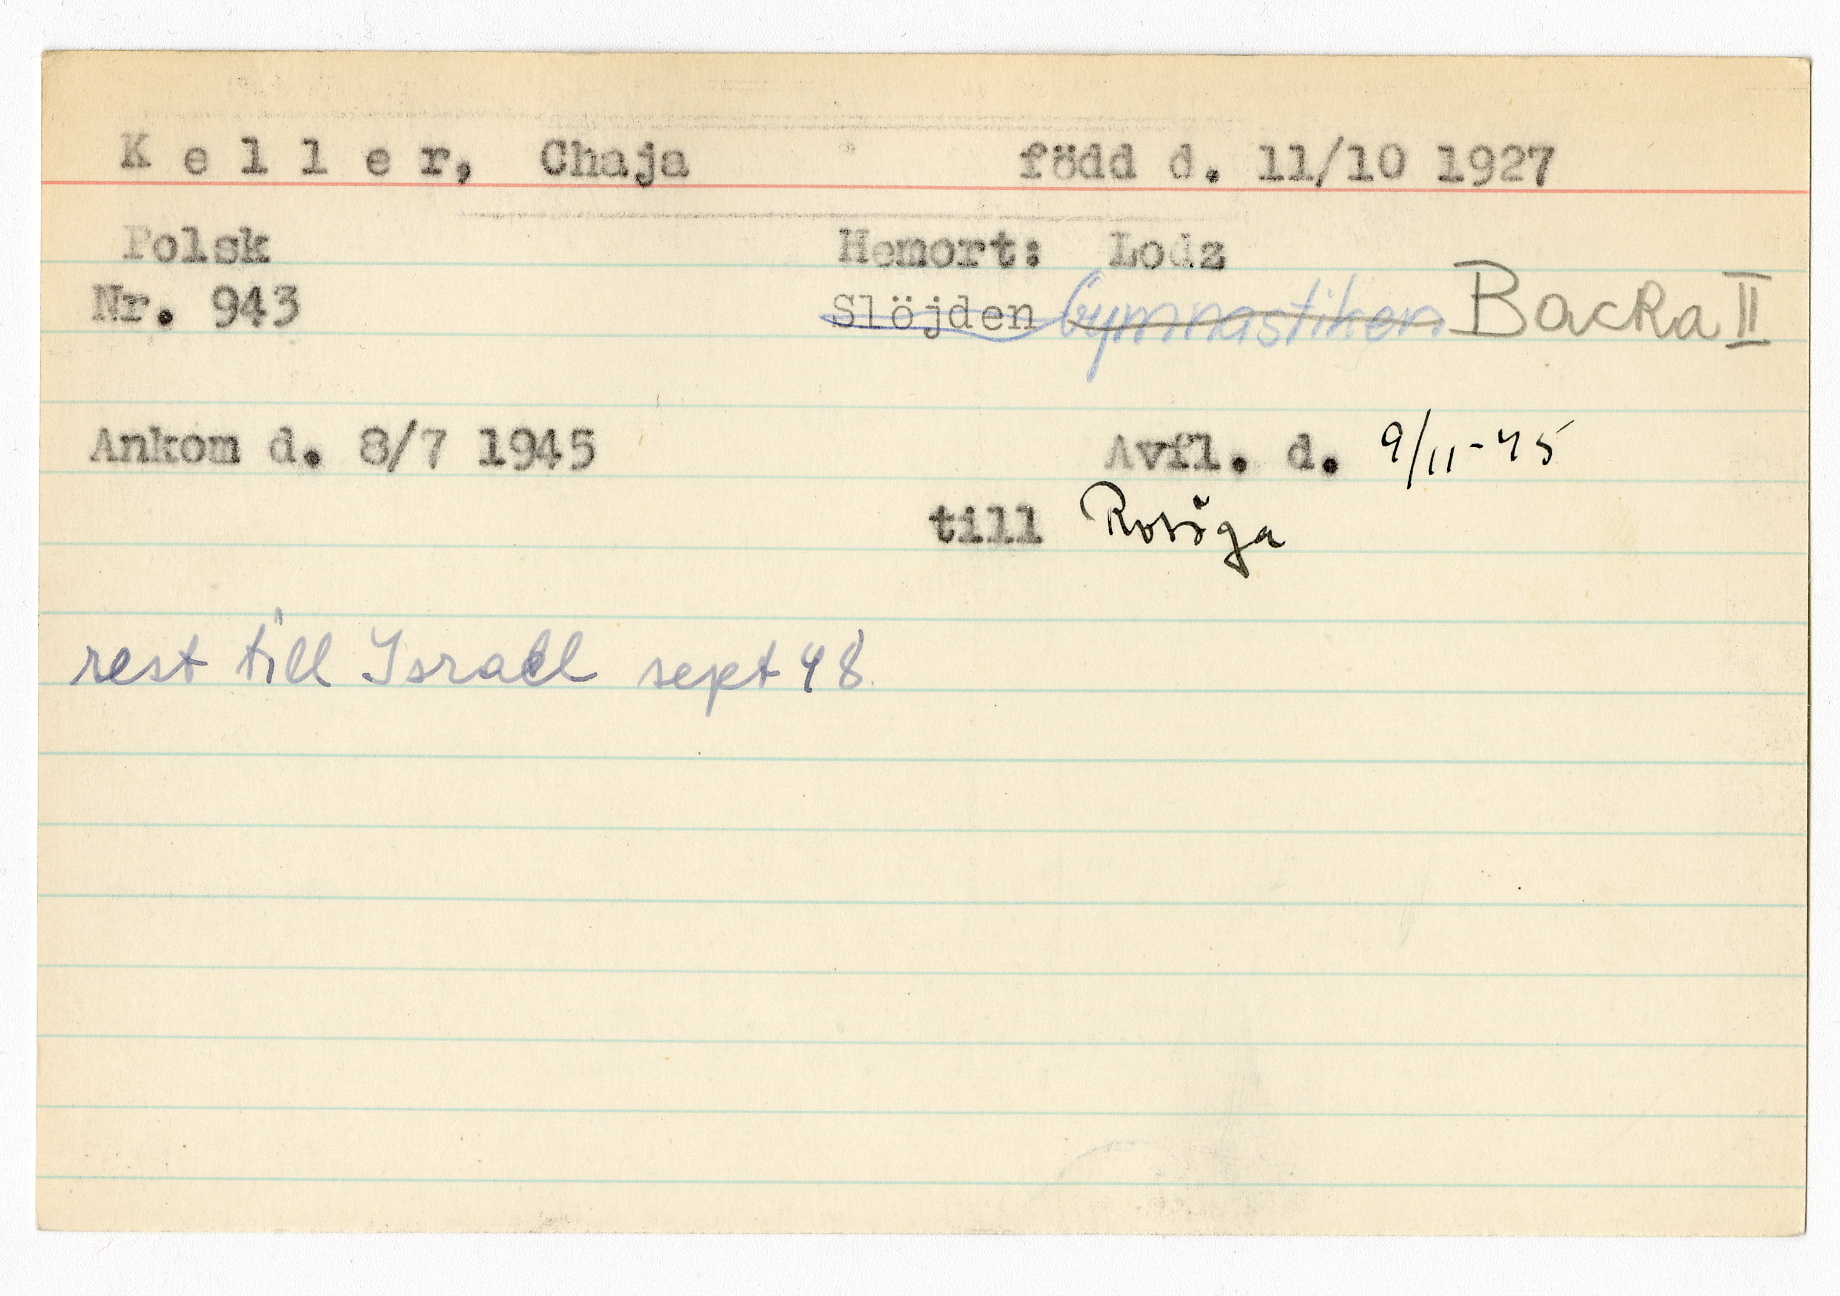 K e l l e r, Chaja född d. 11/10 1927
Polsk Hemort: Lodz
Nr. 943 Slöjden Gymnastiken Backa II
Ankom d. 8/7 1945 Avfl. d. 9/11-45
till Rosöga
rest till Israel sept 48